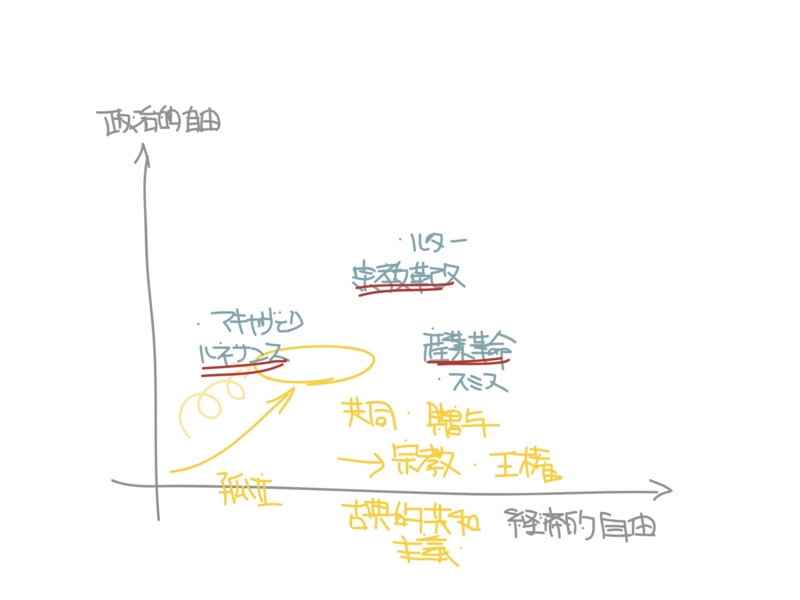 政治的自由
・ルター
宗教革改
・マキャヴェリ
ルネサンス
産業革命
・スミス
共同・贈与
→宗教・王権
孤立
古典的共和
主義
経済的自由